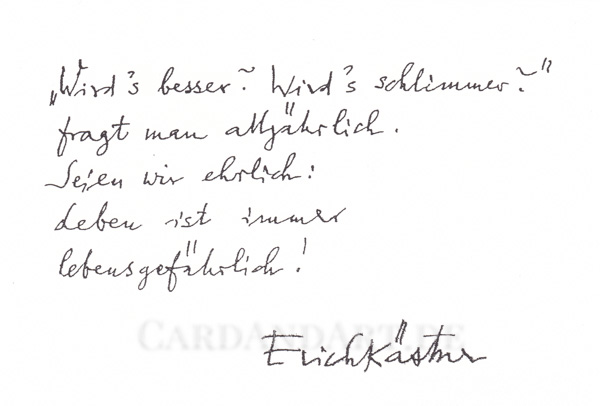 „Wird's besser? Wird's schlimmer?"
fragt man alljährlich.
Seien wir ehrlich:
Leben ist immer
lebensgefährlich!
CARDANDART.DE
Erich Kästner